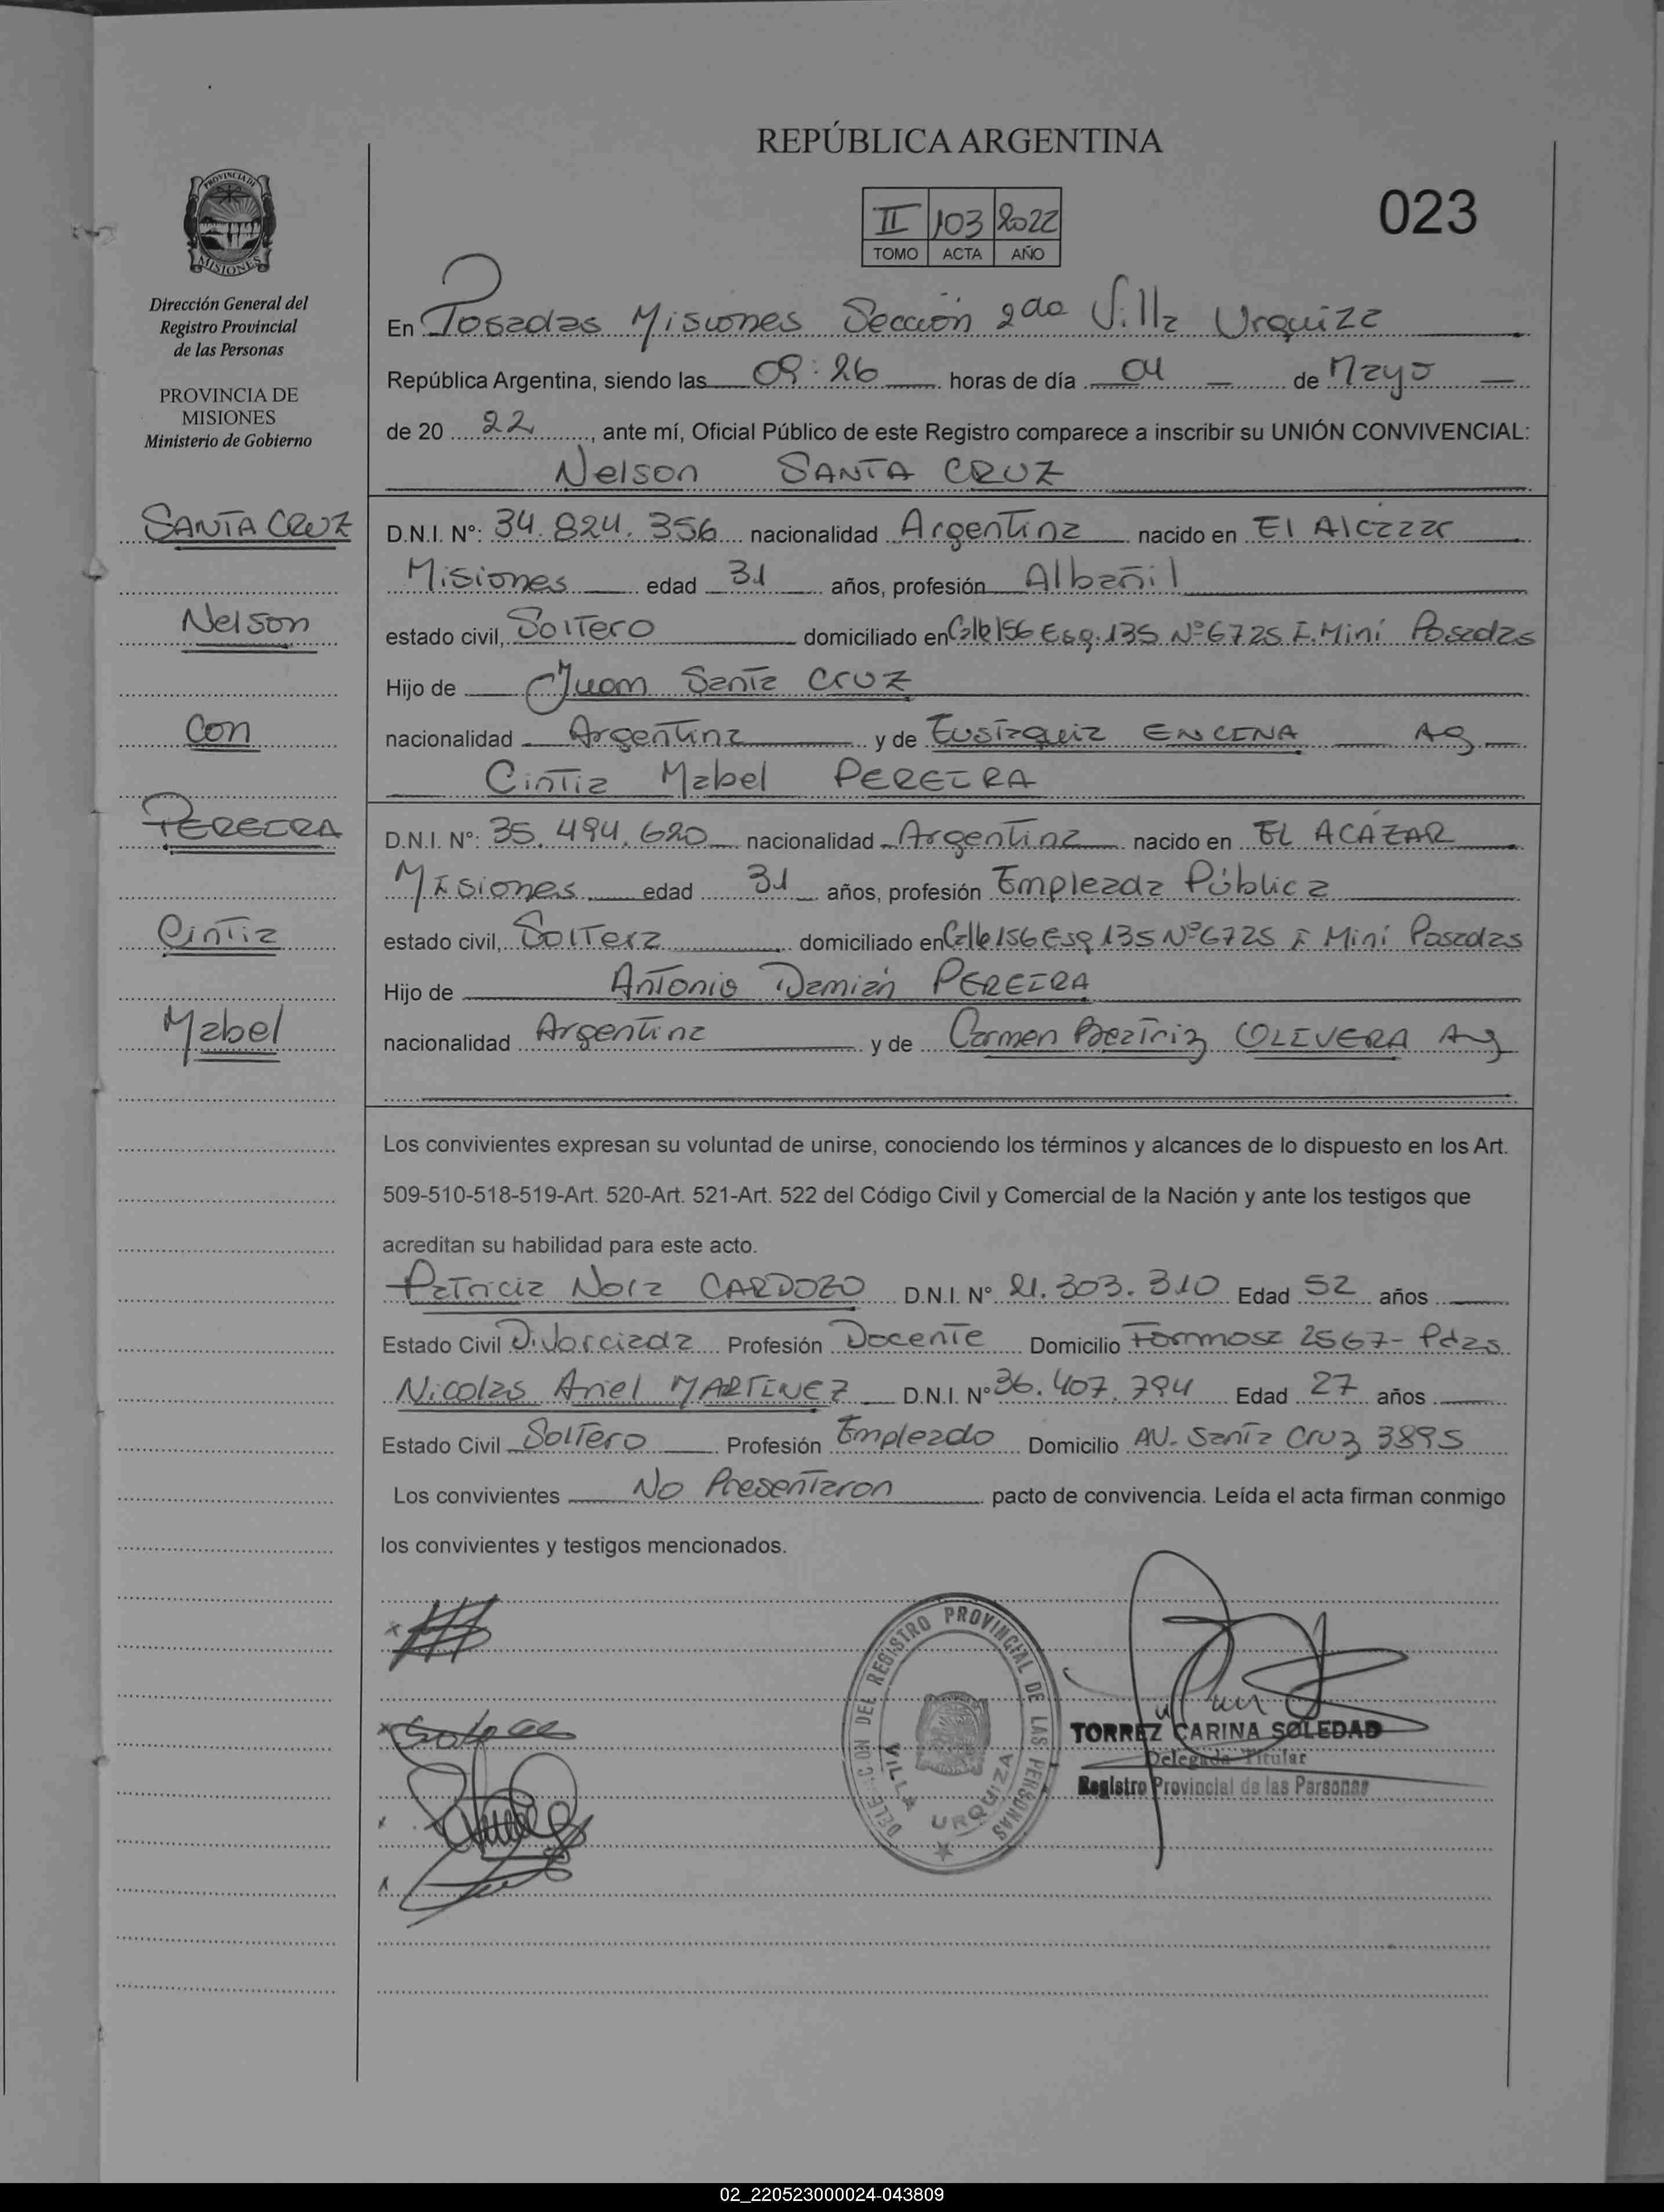 REPÚBLICA ARGENTINA
II 103 2022
TOMO ACTA AÑO
023
PROVINCIA DE
MISIONES
Dirección General del
Registro Provincial
de las Personas
PROVINCIA DE
MISIONES
Ministerio de Gobierno
SANTA CRUZ
Nelson
Con
PEREIRA
Cintia
Mabel
En Posadas Misiones Sección 2da Villa Urquiza
República Argentina, siendo las 09:26 horas de día 04 de Mayo
de 20 22, ante mí, Oficial Público de este Registro comparece a inscribir su UNIÓN CONVIVENCIAL:
Nelson SANTA CRUZ
D.N.I. Nº: 34.824.356 nacionalidad Argentina nacido en El Alcazar
Misiones edad 31 años, profesión Albañil
estado civil, Soltero domiciliado en Calle 156 Esq. 135 Nº 6725 I. Miní Posadas
Hijo de Juan Santa Cruz
nacionalidad Argentina y de Eustaquia ENCINA Ag
Cintia Mabel PEREIRA
D.N.I. Nº: 35.494.620 nacionalidad Argentina nacido en EL ACÁZAR
Misiones edad 31 años, profesión Empleada Pública
estado civil, Soltera domiciliado en Calle 156 Esq 135 Nº 6725 I Miní Posadas
Hijo de Antonio Damián PEREIRA
nacionalidad Argentina y de Carmen Beatriz OLIVERA Ag
Los convivientes expresan su voluntad de unirse, conociendo los términos y alcances de lo dispuesto en los Art.
509-510-518-519-Art. 520-Art. 521-Art. 522 del Código Civil y Comercial de la Nación y ante los testigos que
acreditan su habilidad para este acto.
Patricia Nora CARDOZO D.N.I. Nº 21.303.310 Edad 52 años
Estado Civil Divorciada Profesión Docente Domicilio Formosa 2567- Pdas
Nicolas Ariel MARTINEZ D.N.I. Nº 36.407.794 Edad 27 años
Estado Civil Soltero Profesión Empleado Domicilio AV. Santa Cruz 3895
Los convivientes No Presentaron pacto de convivencia. Leída el acta firman conmigo
los convivientes y testigos mencionados.
DELEGACION DEL REGISTRO PROVINCIAL DE LAS PERSONAS
VILLA URQUIZA
TORREZ CARINA SOLEDAD
Delegada Titular
Registro Provincial de las Personas
02_220523000024-043809